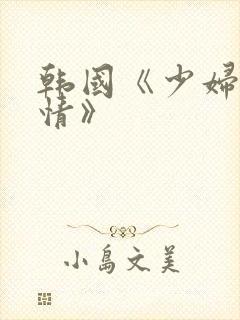 韩國《少婦
情》
小島文美